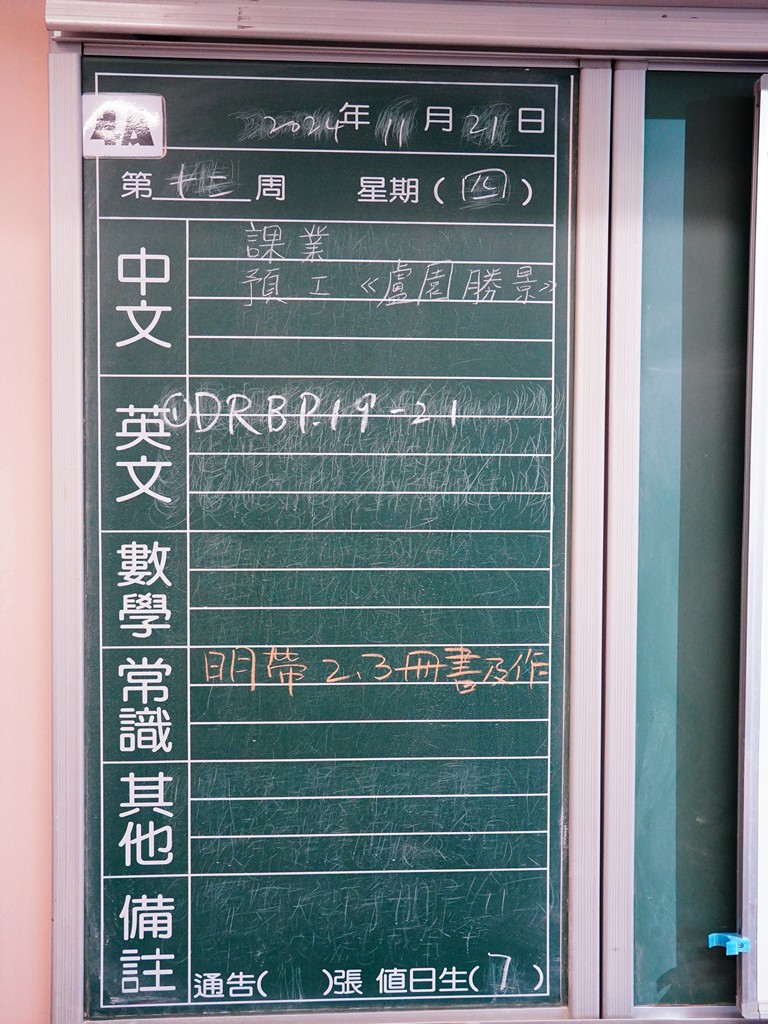 4A
2024年11月21日
第十二周 星期(四)
中文
課業
預工《盧園勝景》
英文
①DRB P.19-21
數學
常識
明帶2.3冊書及作
其他
備註
通告( )張 值日生(7)